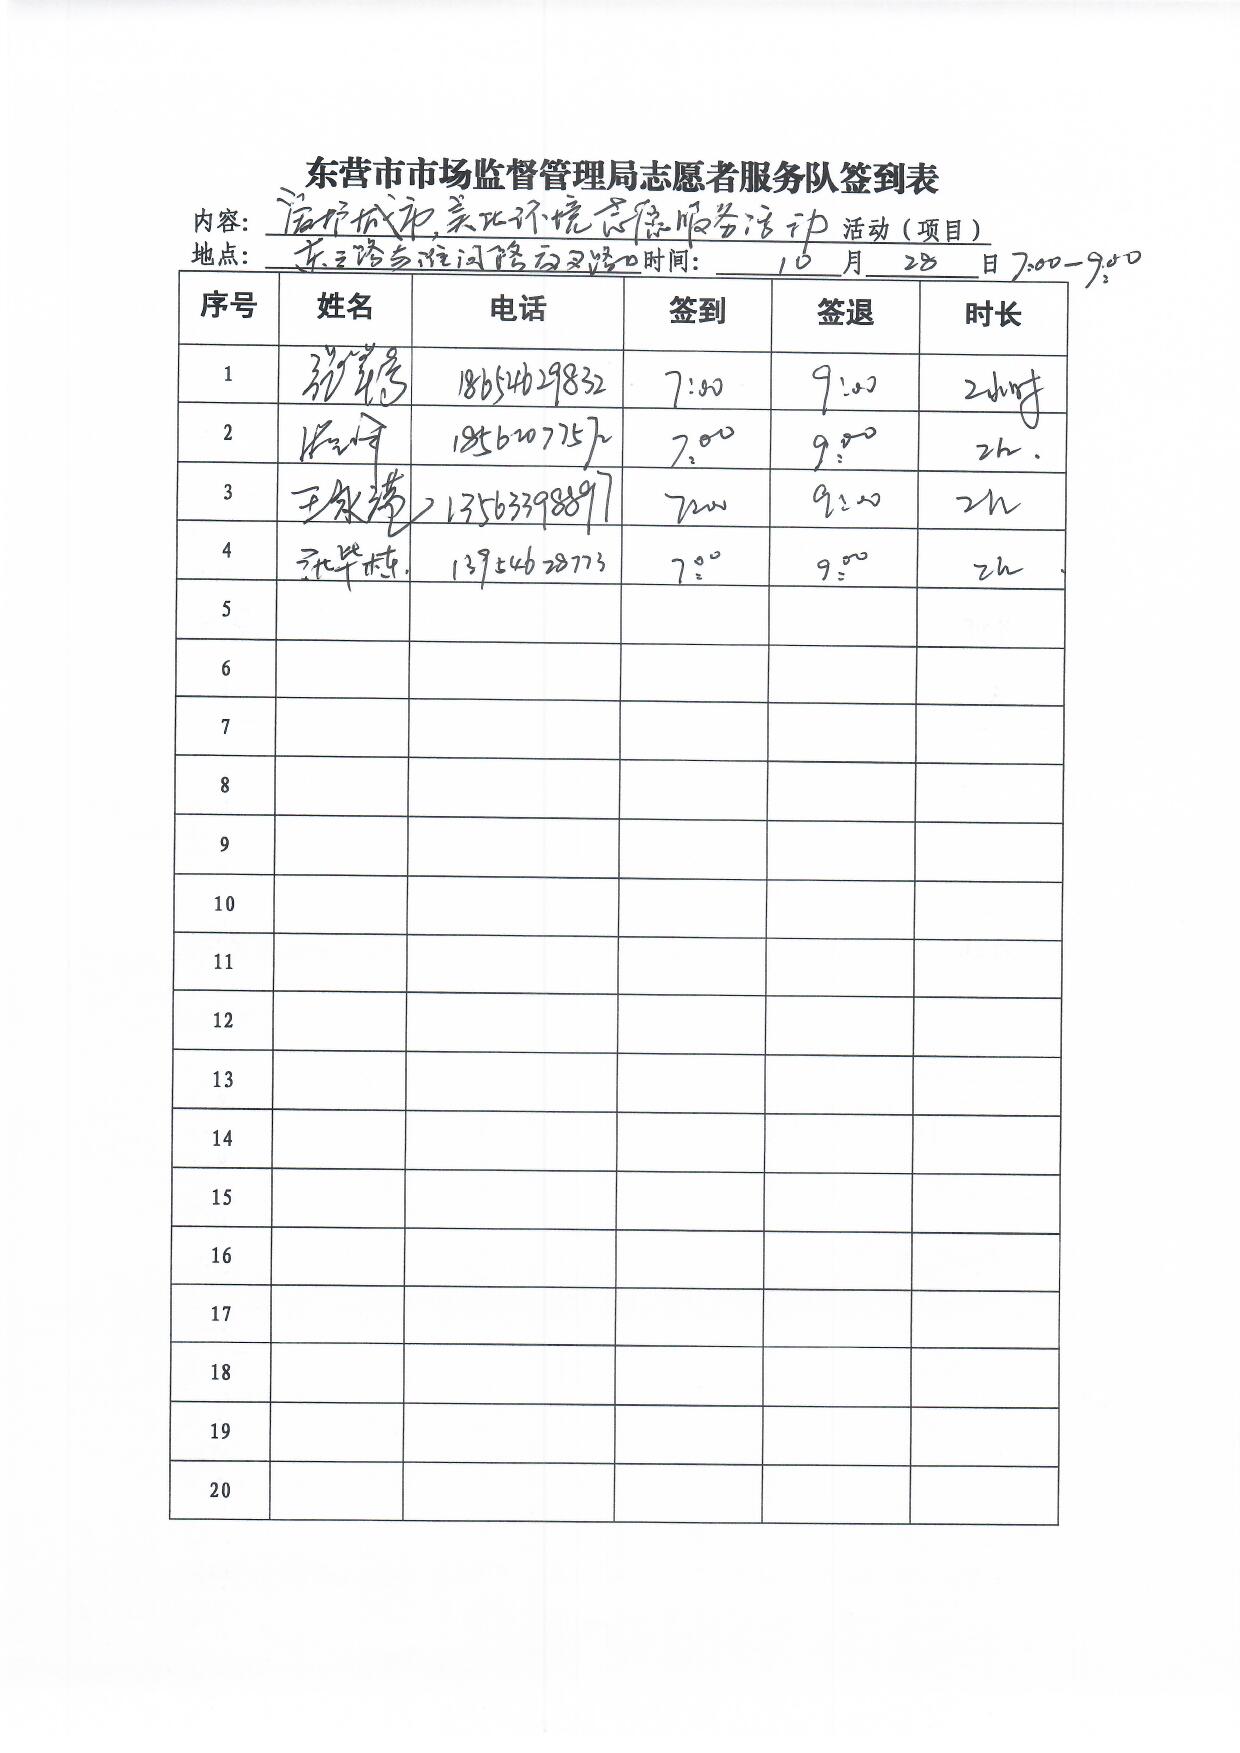 东营市市场监督管理局志愿者服务队签到表
内容: 清护城市,美化环境志愿服务活动 活动（项目）
地点: 东三路与淮河路交叉路口 时间: 10 月 28 日 7:00-9:00
序号 姓名 电话 签到 签退 时长
1 18654629832 7:00 9:00 2小时
2 7:00 9:00 2h.
3 王永 13563398897 7:00 9:00 2h
4 张华栋. 13954628773 7:00 9:00 2h
5
6
7
8
9
10
11
12
13
14
15
16
17
18
19
20